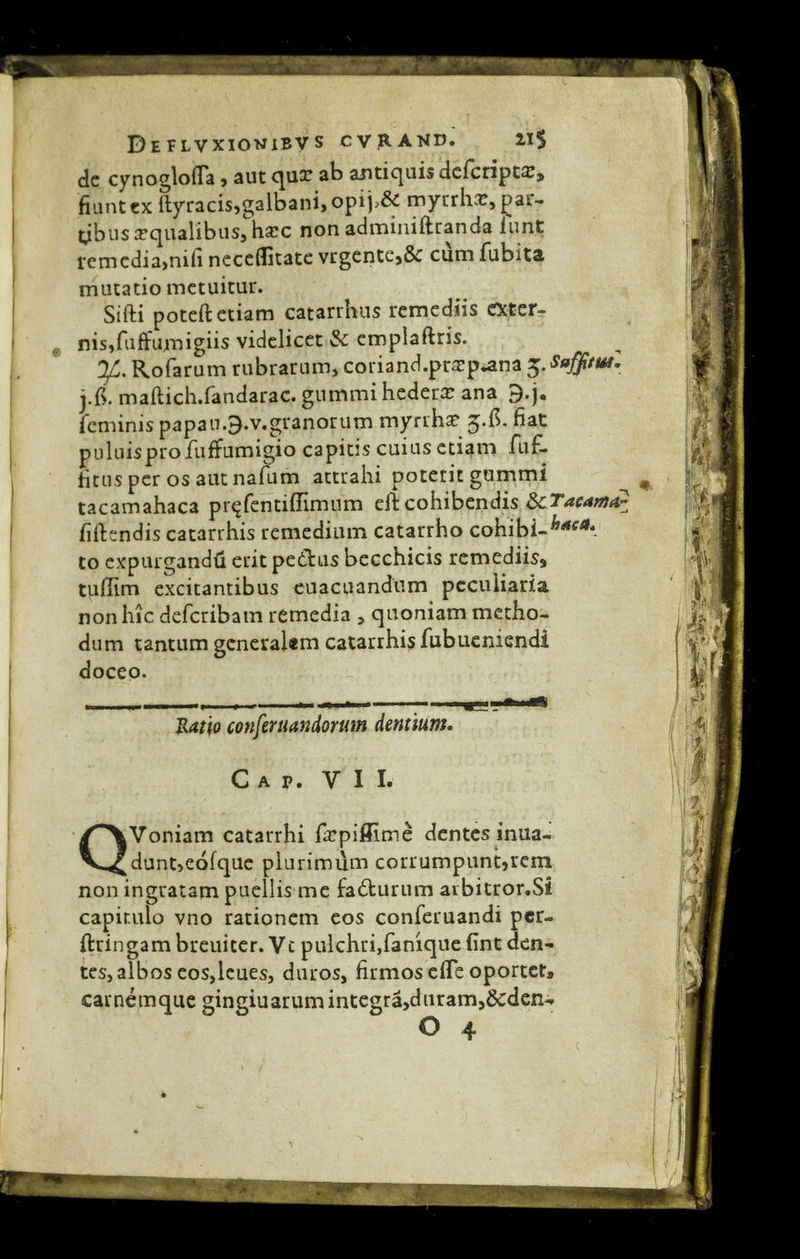 DEFLVXIONIBVS CVRAND. 215
de cynogloſſa, aut quæ ab antiquis deſcriptæ,
fiunt ex ſtyracis,galbani, opij,& myrrhæ, par-
tibus æqualibus, hæc non adminiſtranda ſunt
remedia,niſi neceſſitate vrgente,& cùm ſubita
mutatio metuitur.
Siſti poteſt etiam catarrhus remediis exter-
nis,ſuffumigiis videlicet & emplaſtris.
℞. Roſarum rubrarum, coriand.præp.ana ʒ. Suffitus.
j.ß. maſtich.ſandarac. gummi hederæ ana ℈.j.
ſeminis papau.℈.v.granorum myrrhæ ʒ.ß. fiat
puluis pro ſuffumigio capitis cuius etiam ſuf-
fitus per os aut naſum attrahi poterit gummi
tacamahaca pręſentiſſimum eſt cohibendis & Tacama-
ſiſtendis catarrhis remedium catarrho cohibi- haca.
to expurgandũ erit pectus becchicis remediis,
tuſſim excitantibus euacuandum peculiaria
non hîc deſcribam remedia , quoniam metho-
dum tantum generalem catarrhis ſubueniendi
doceo.
Ratio conſeruandorum dentium.
CAP. VII.
QVoniam catarrhi ſæpiſſimè dentes inua-
dunt,eóſque plurimùm corrumpunt,rem
non ingratam puellis me facturum arbitror.Si
capitulo vno rationem eos conſeruandi per-
ſtringam breuiter. Vt pulchri,ſaníque ſint den-
tes, albos eos,leues, duros, firmos eſſe oportet,
carnémque gingiuarum integrã,duram,&den-
O 4